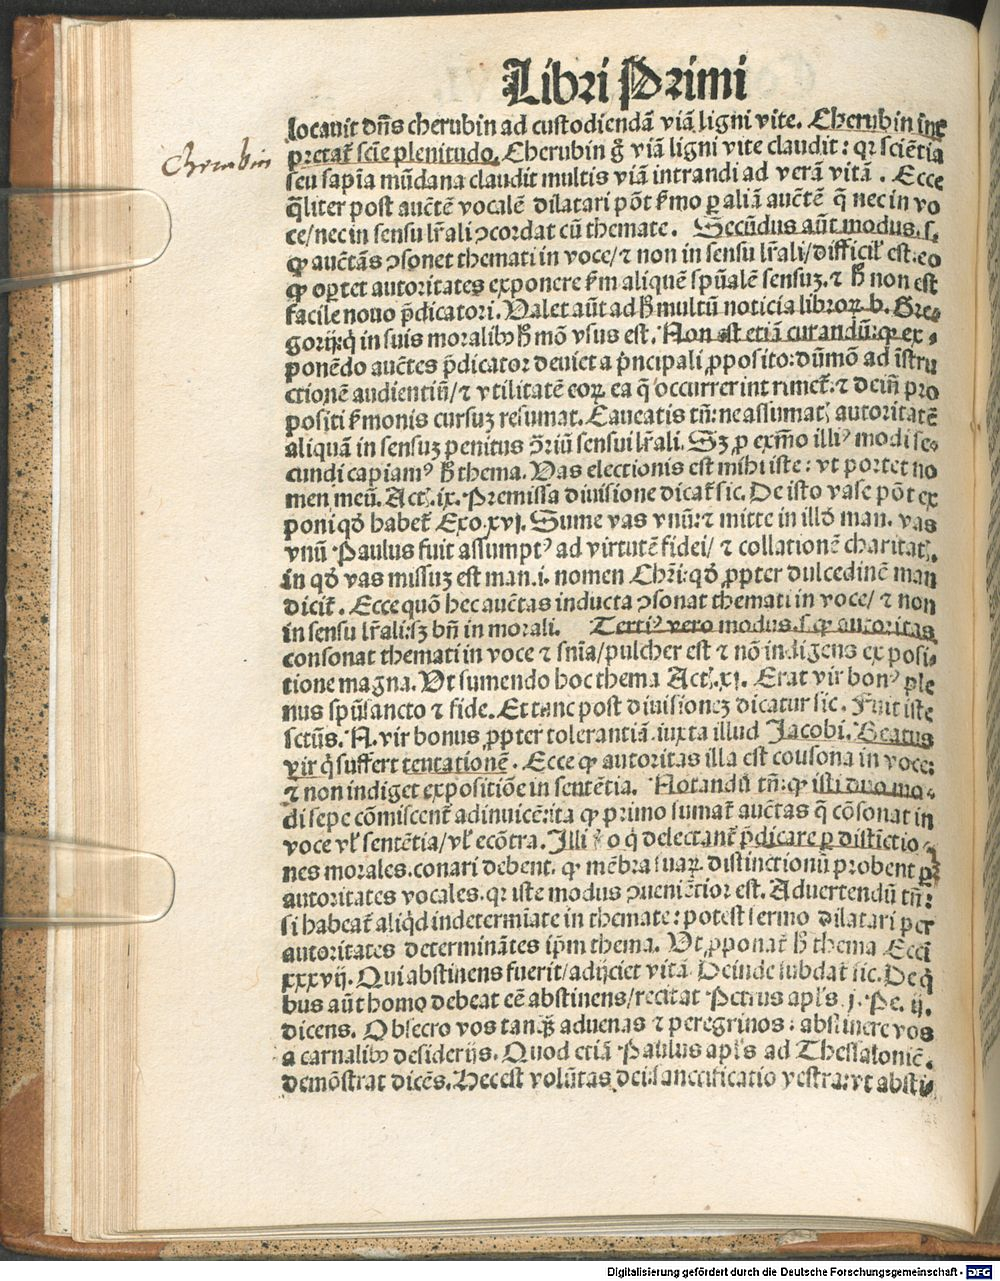 Libri Primi
locauit dn̄s cherubin ad custodiendā viā ligni vite. Cherubin īnt̄
Cherubin
pretat̄ scīe plenitudo. Cherubin g̊ viā ligni vite claudit: qꝛ sciētia
seu sapīa mūdana claudit multis viā intrandi ad verā vitā. Ecce
q̄liter post auctē vocalē dilatari pōt ẜmo ꝑ aliā auctē q̄ nec in vo
ce/nec in sensu lr̄ali ↄcordat cū themate. Secūdus aūt modus.s.
ꝙ auctās ↄsonet themati in voce/⁊ non in sensu lr̄ali/difficil̓ est:eo
ꝙ oꝑtet autoritates exponere ẜm aliquē spūalē sensuȝ.⁊ h̄ non est
facile nouo p̄dicatori. Ualet aūt ad h̄ multū noticia libroꝝ b. Gre⸗
gorij:q̇ in suis moralibꝰ h̄ mō vsus est. Non est etiā curandū:ꝙ ex⸗
ponēdo auctes p̄dicator deuiet a p̄ncipali ꝓposito:dūmō ad īstru
ctionē audientiū/⁊ vtilitatē eoꝝ ea q̄ occurrerint rimet̄.⁊ dein̄ pro
positi ẜmonis cursuȝ resumat. Caueatis tn̄:ne assumatꝭ autoritatē
aliquā in sensuȝ penitus ↄ̄riū sensui lr̄ali. Sȝ ꝓ exm̄o illiꝰ modi se⸗
cundi capiamꝰ h̄ thema. Uas electionis est mihi iste: vt portet no
men meū. Actꝭ.ix. Premissa diuisione dicat̄ sic. De isto vase pōt ex
poni qd̓ habet̄ Exo.xvj. Sume vas vnū:⁊ mitte in illd̓ man. vas
vnū Paulus fuit assumptꝰ ad virtutē fidei/ ⁊ collationē charitatꝭ.
in qd̓ vas missuȝ est man.i. nomen Chr̄i:qd̓ ꝓpter dulcedinē man
dicit̄. Ecce quō hec auctas inducta ↄsonat themati in voce/ ⁊ non
in sensu lr̄ali:sȝ bn̄ in morali. Tertiꝰ vero modus.s.ꝙ autoritas
consonat themati in voce ⁊ sn̄ia/pulcher est ⁊ nō indigens exposi⸗
tione magna. Ut sumendo hoc thema Actꝭ.xj. Erat vir bonꝰ ple
nus spūsancto ⁊ fide. Et tunc post diuisionez dicatur sic. Fuit iste
sctūs.N.vir bonus ꝓpter tolerantiā.iuxta illud Jacobi. Beatus
vir q̇ suffert tentationē. Ecce ꝙ autoritas illa est consona in voce:
⁊ non indiget expositiōe in sentētia. Notandū tn̄:ꝙ isti duo mo⸗
di sepe cōmiscent̄ adinuicē:ita ꝙ primo sumat̄ auctas q̄ cōsonat in
voce vl̓ sentētia/vl̓ ecōtra. Illi o q̇ delectant̄ p̄dicare ꝑ distīctio
nes morales.conari debent. ꝙ mēbra suaꝝ distinctionū probent ꝑ
autoritates vocales.qꝛ iste modus ↄueniētior est. Aduertendū tn̄:
si habeat̄ aliqd̓ indetermīate in themate:potest sermo dilatari per
autoritates determinātes ip̄m thema. Ut ꝓponat̄ h̄ thema Ecci
xxxvij. Qui abstinens fuerit/adijciet vitā. Deinde subdat̄ sic. De q̇
bus aūt homo debeat eē abstinens/recitat Petrus apl̓s.j. Pe. ij.
dicens. Obsecro vos tanq̄ȝ aduenas ⁊ peregrinos: abstinere vos
a carnalibꝰ desiderijs. Quod etiā Paulus apl̓s ad Thessalonicē.
demōstrat dicēs. Hec est volūtas dei:sanctificatio vestra:vt absti⸗
Digitalisierung gefördert durch die Deutsche Forschungsgemeinschaft - DFG